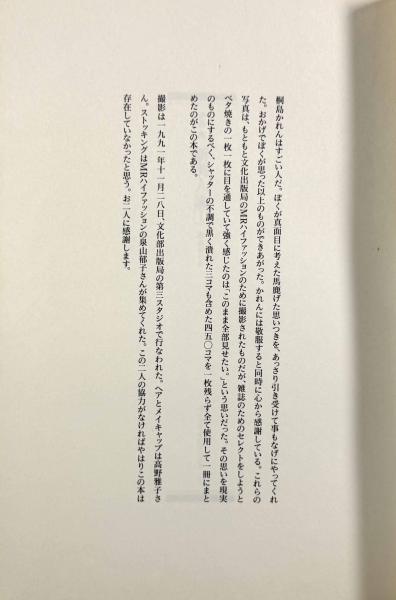 桐島かれんはすごい人だ。ぼくが真面目に考えた馬鹿げた思いつきを、あっさり引き受けて事もなげにやってくれ
た。おかげでぼくが思った以上のものができあがった。かれんには敬服すると同時に心から感謝している。これらの
写真は、もともと文化出版局のMRハイファッションのために撮影されたものだが、雑誌のためのセレクトをしようと
ベタ焼きの一枚一枚に目を通していて強く感じたのは、「このまま全部見せたい。」という思いだった。その思いを現実
のものにするべく、シャッターの不調で黒く潰れた三コマも含めた四五〇コマを一枚残らず全て使用して一冊にまと
めたのがこの本である。
撮影は一九九一年十一月二八日、文化部出版局の第三スタジオで行なわれた。ヘアとメイキャップは高野雅子さ
ん。ストッキングはMRハイファッションの泉山郁子さんが集めてくれた。この二人の協力がなければやはりこの本は
存在していなかったと思う。お二人に感謝します。